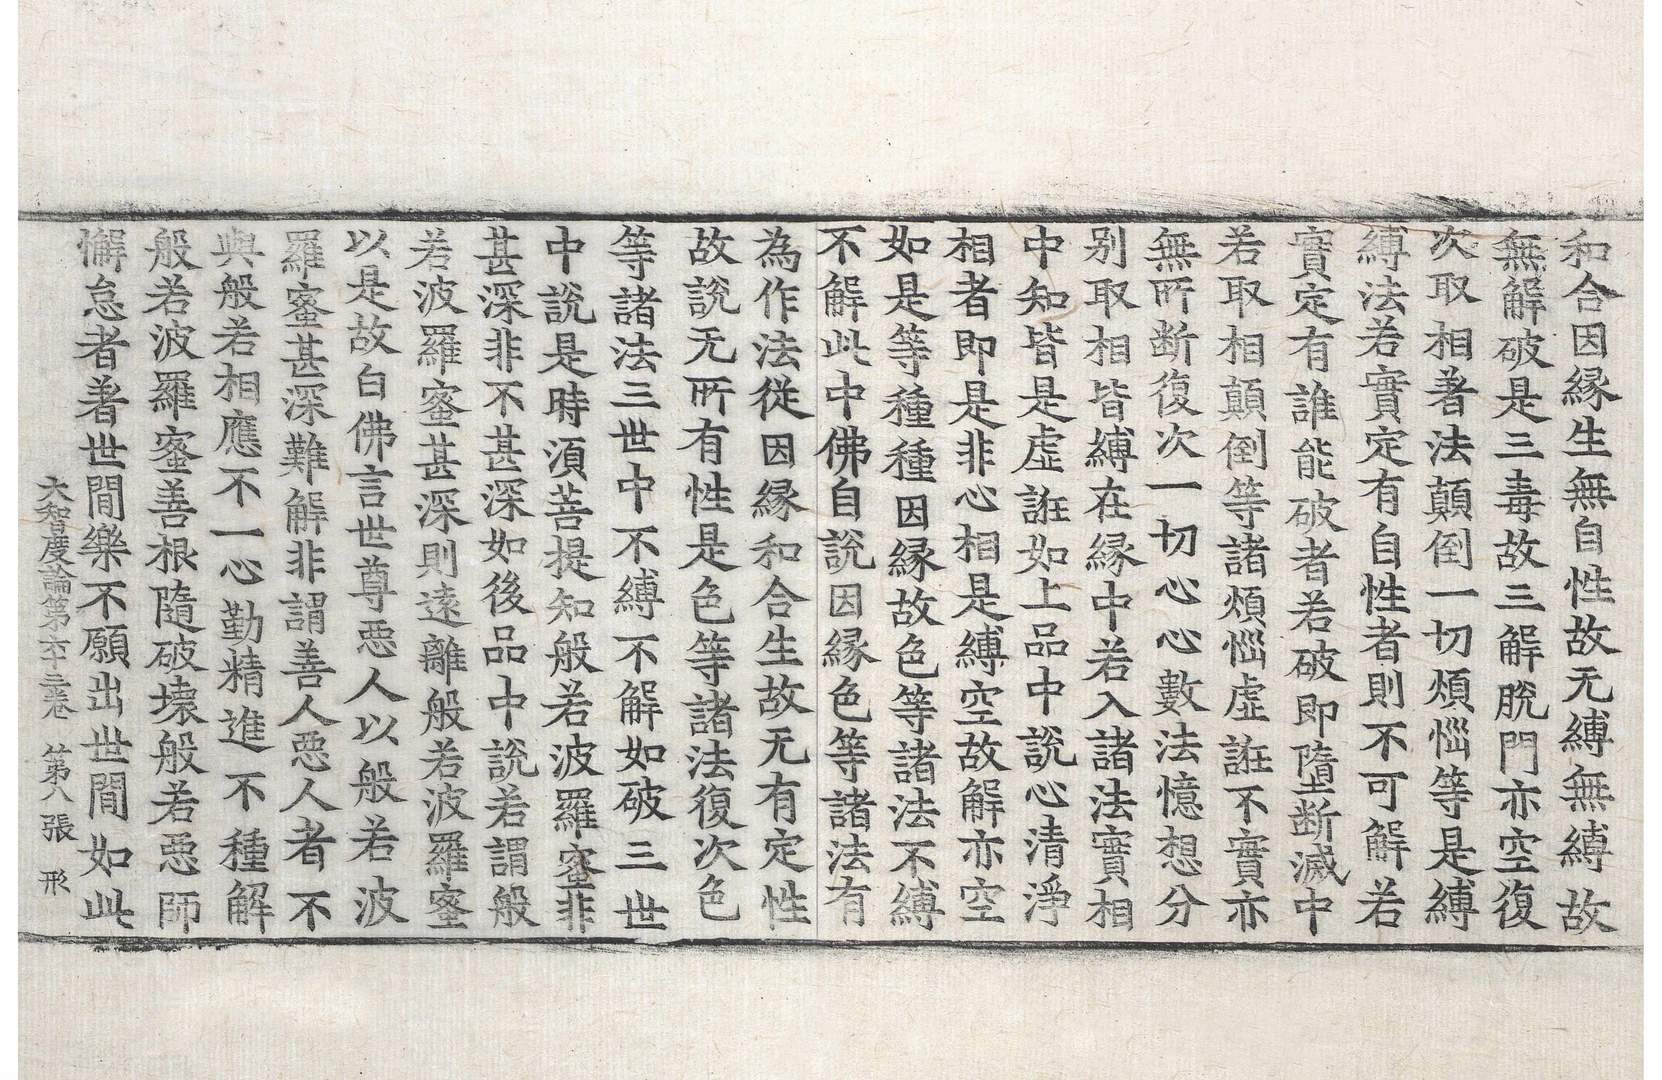 和合因縁生無自性故无縛無縛故
無解破是三毒故三解脫門亦空復
次取相著法顛倒一切煩惱等是縛
縛法若實定有自性者則不可解若
實定有誰能破者若破即墮斷滅中
若取相顛倒等諸煩惱虛誑不實亦
無所断復次一切心心數法憶想分
別取相皆縛在縁中若入諸法實相
中知皆是虛誑如上品中說心清淨
相者即是非心相是縛空故解亦空
如是等種種因縁故色等諸法不縛
不解此中佛自說因縁色等諸法有
為作法從因縁和合生故无有定性
故說无所有性是色等諸法復次色
等諸法三世中不縛不解如破三世
中說是時須菩提知般若波羅蜜非
甚深非不甚深如後品中說若謂般
若波羅蜜甚深則遠離般若波羅蜜
以是故白佛言世尊惡人以般若波
羅蜜甚深難解非謂善人惡人者不
與般若相應不一心勤精進不種解
般若波羅蜜善根隨破壞般若惡師
懈怠者著世閒樂不願出世閒如此
大智度論第六十三卷 第八張 形